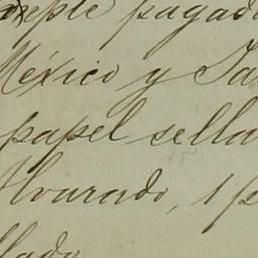 pagad
México y Ta
papel sella
Alvarado, 1 p
llado